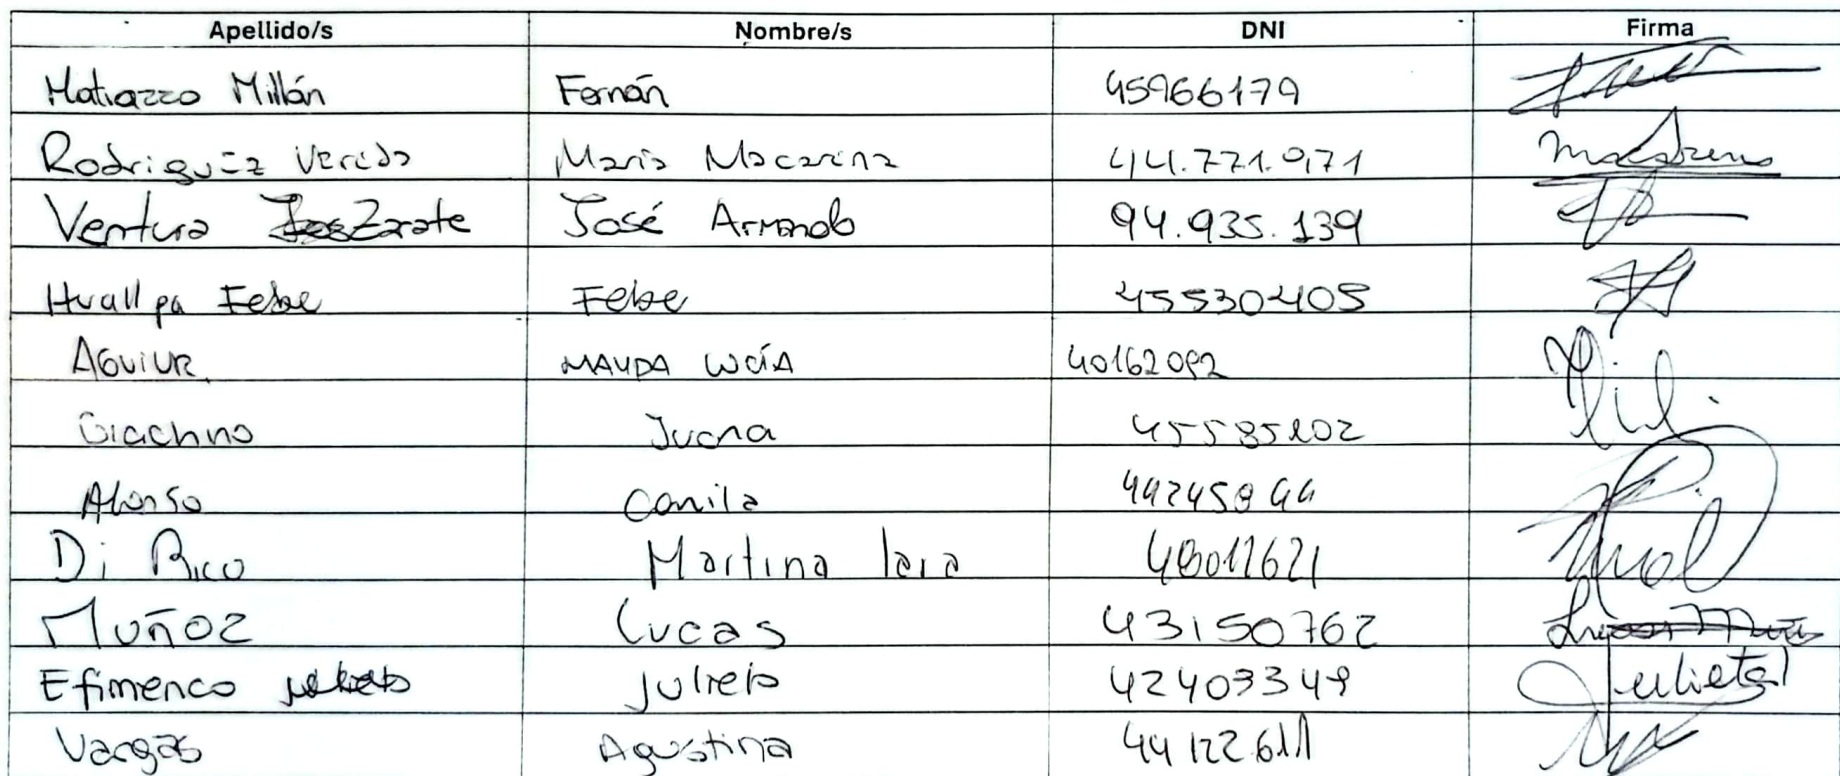 Apellido/s Nombre/s DNI Firma
Matiazzo Millán Fernán 45966179
Rodriguez Vereda Maria Macarena 44.771.071 Macarena
Ventura Zarate José Armando 94.935.139
Huallpa Febe Febe 45530405
AGUILAR LUCÍA 40162092
Giachino Juana 45585202
Alonso Camila
Di Rico Martina Iara
Muñoz Lucas 43150762 Lucas Muñoz
Efimenco Julieta 42403349 Julieta
Vargas Agustina 44122611